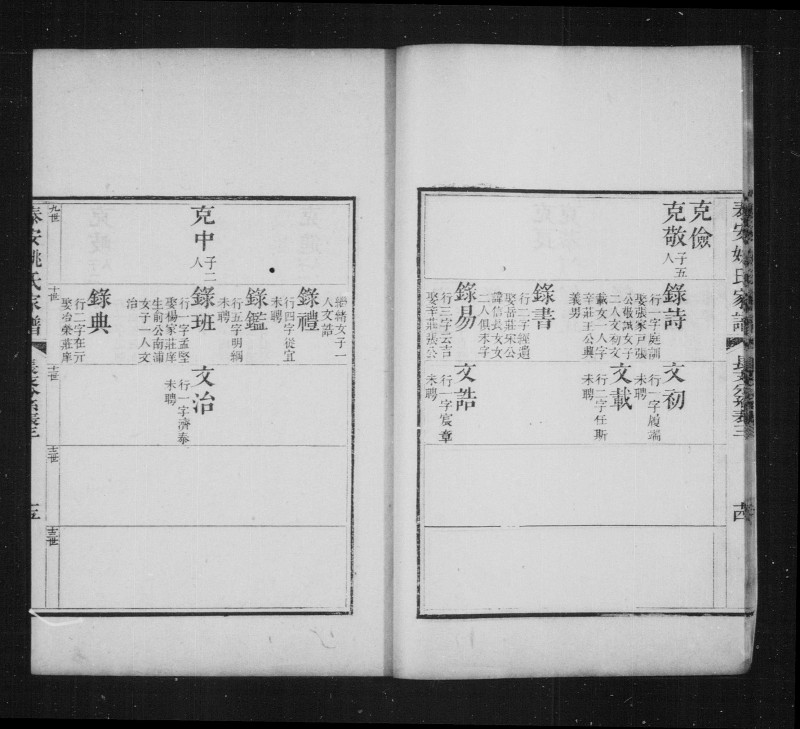 泰安姚氏家譜
長支分系表三
十四
克儉
克敬 子五人
錄詩 行一字庭訓
娶張家戶張
公敬誠女子
二人文初文
載女一人字
辛莊王公典
義男
錄書 行二字經遒
娶岳莊宋公
諱信長女女
二人俱未字
錄易 行三字云吉
娶辛莊張公
文初 行一字履端
未聘
文載 行二字任斯
未聘
文誥 行一字宸章
未聘
繼緒女子一
人文誥
錄禮 行四字從宜
未聘
錄鑑 行五字明綱
未聘
克中 子二人
錄班 行一字孟堅
娶楊家莊庠
生俞公南浦
女子一人文
治
錄典 行二字在亓
娶冶榮莊庠
文治 行一字濟泰
未聘
九世
十世
十一世
十二世
十三世
泰安姚氏家譜
長支分系表三
十五